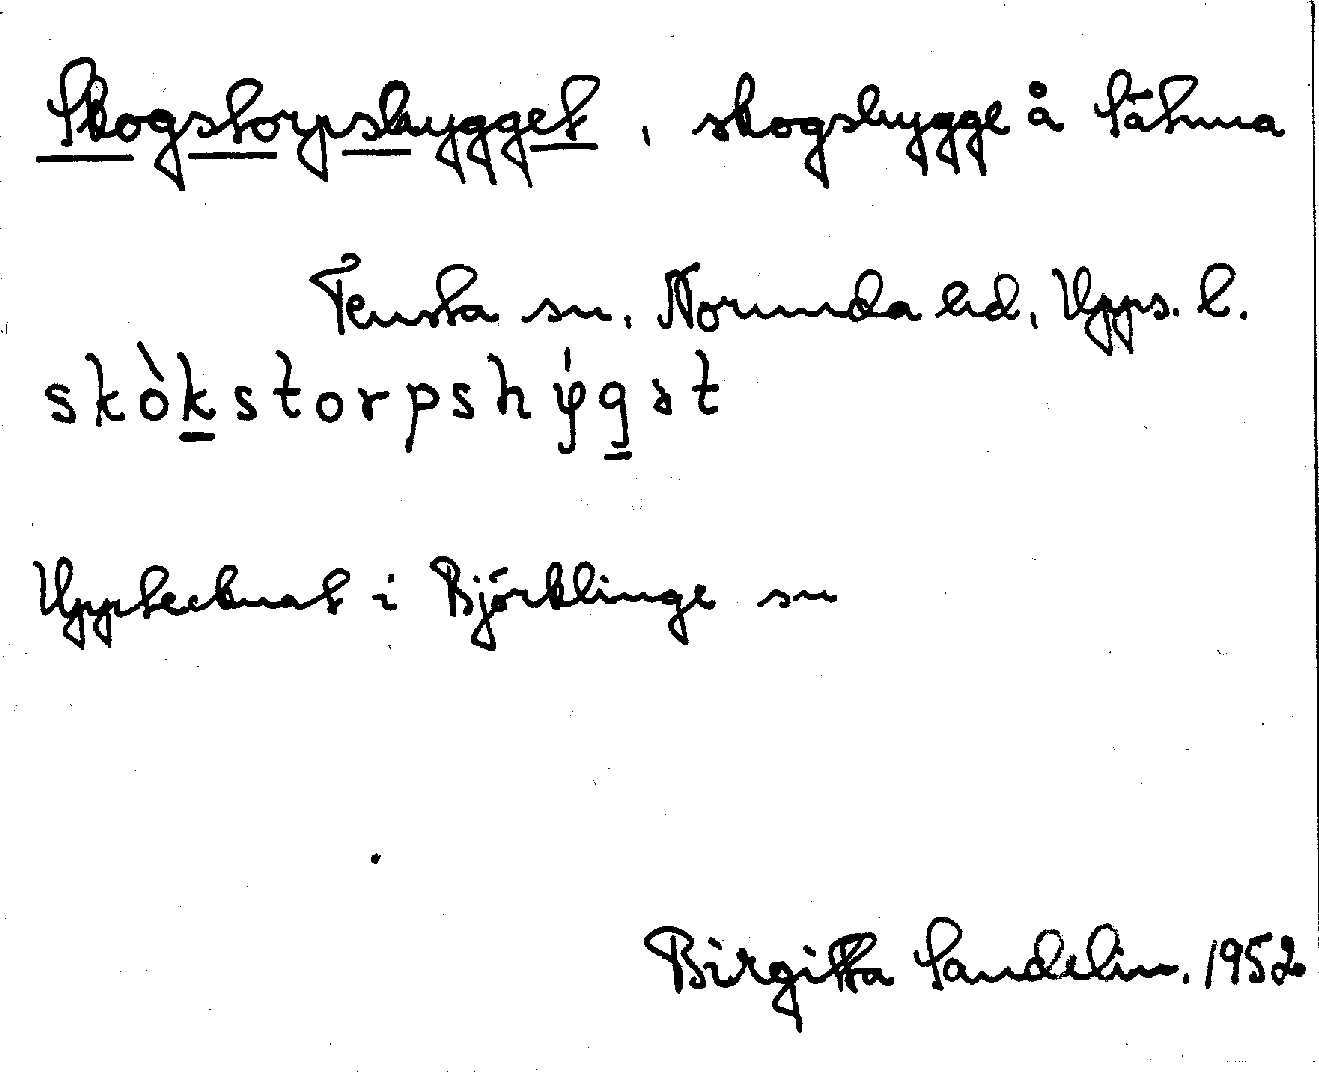 Skogstorpshygget, skogshygge å Sätuna
Tensta sn, Norunda hd, Upps. l.
skòkstorpshy̍gət
Upptecknat i Björklinge sn
Birgitta Sandelin. 1952